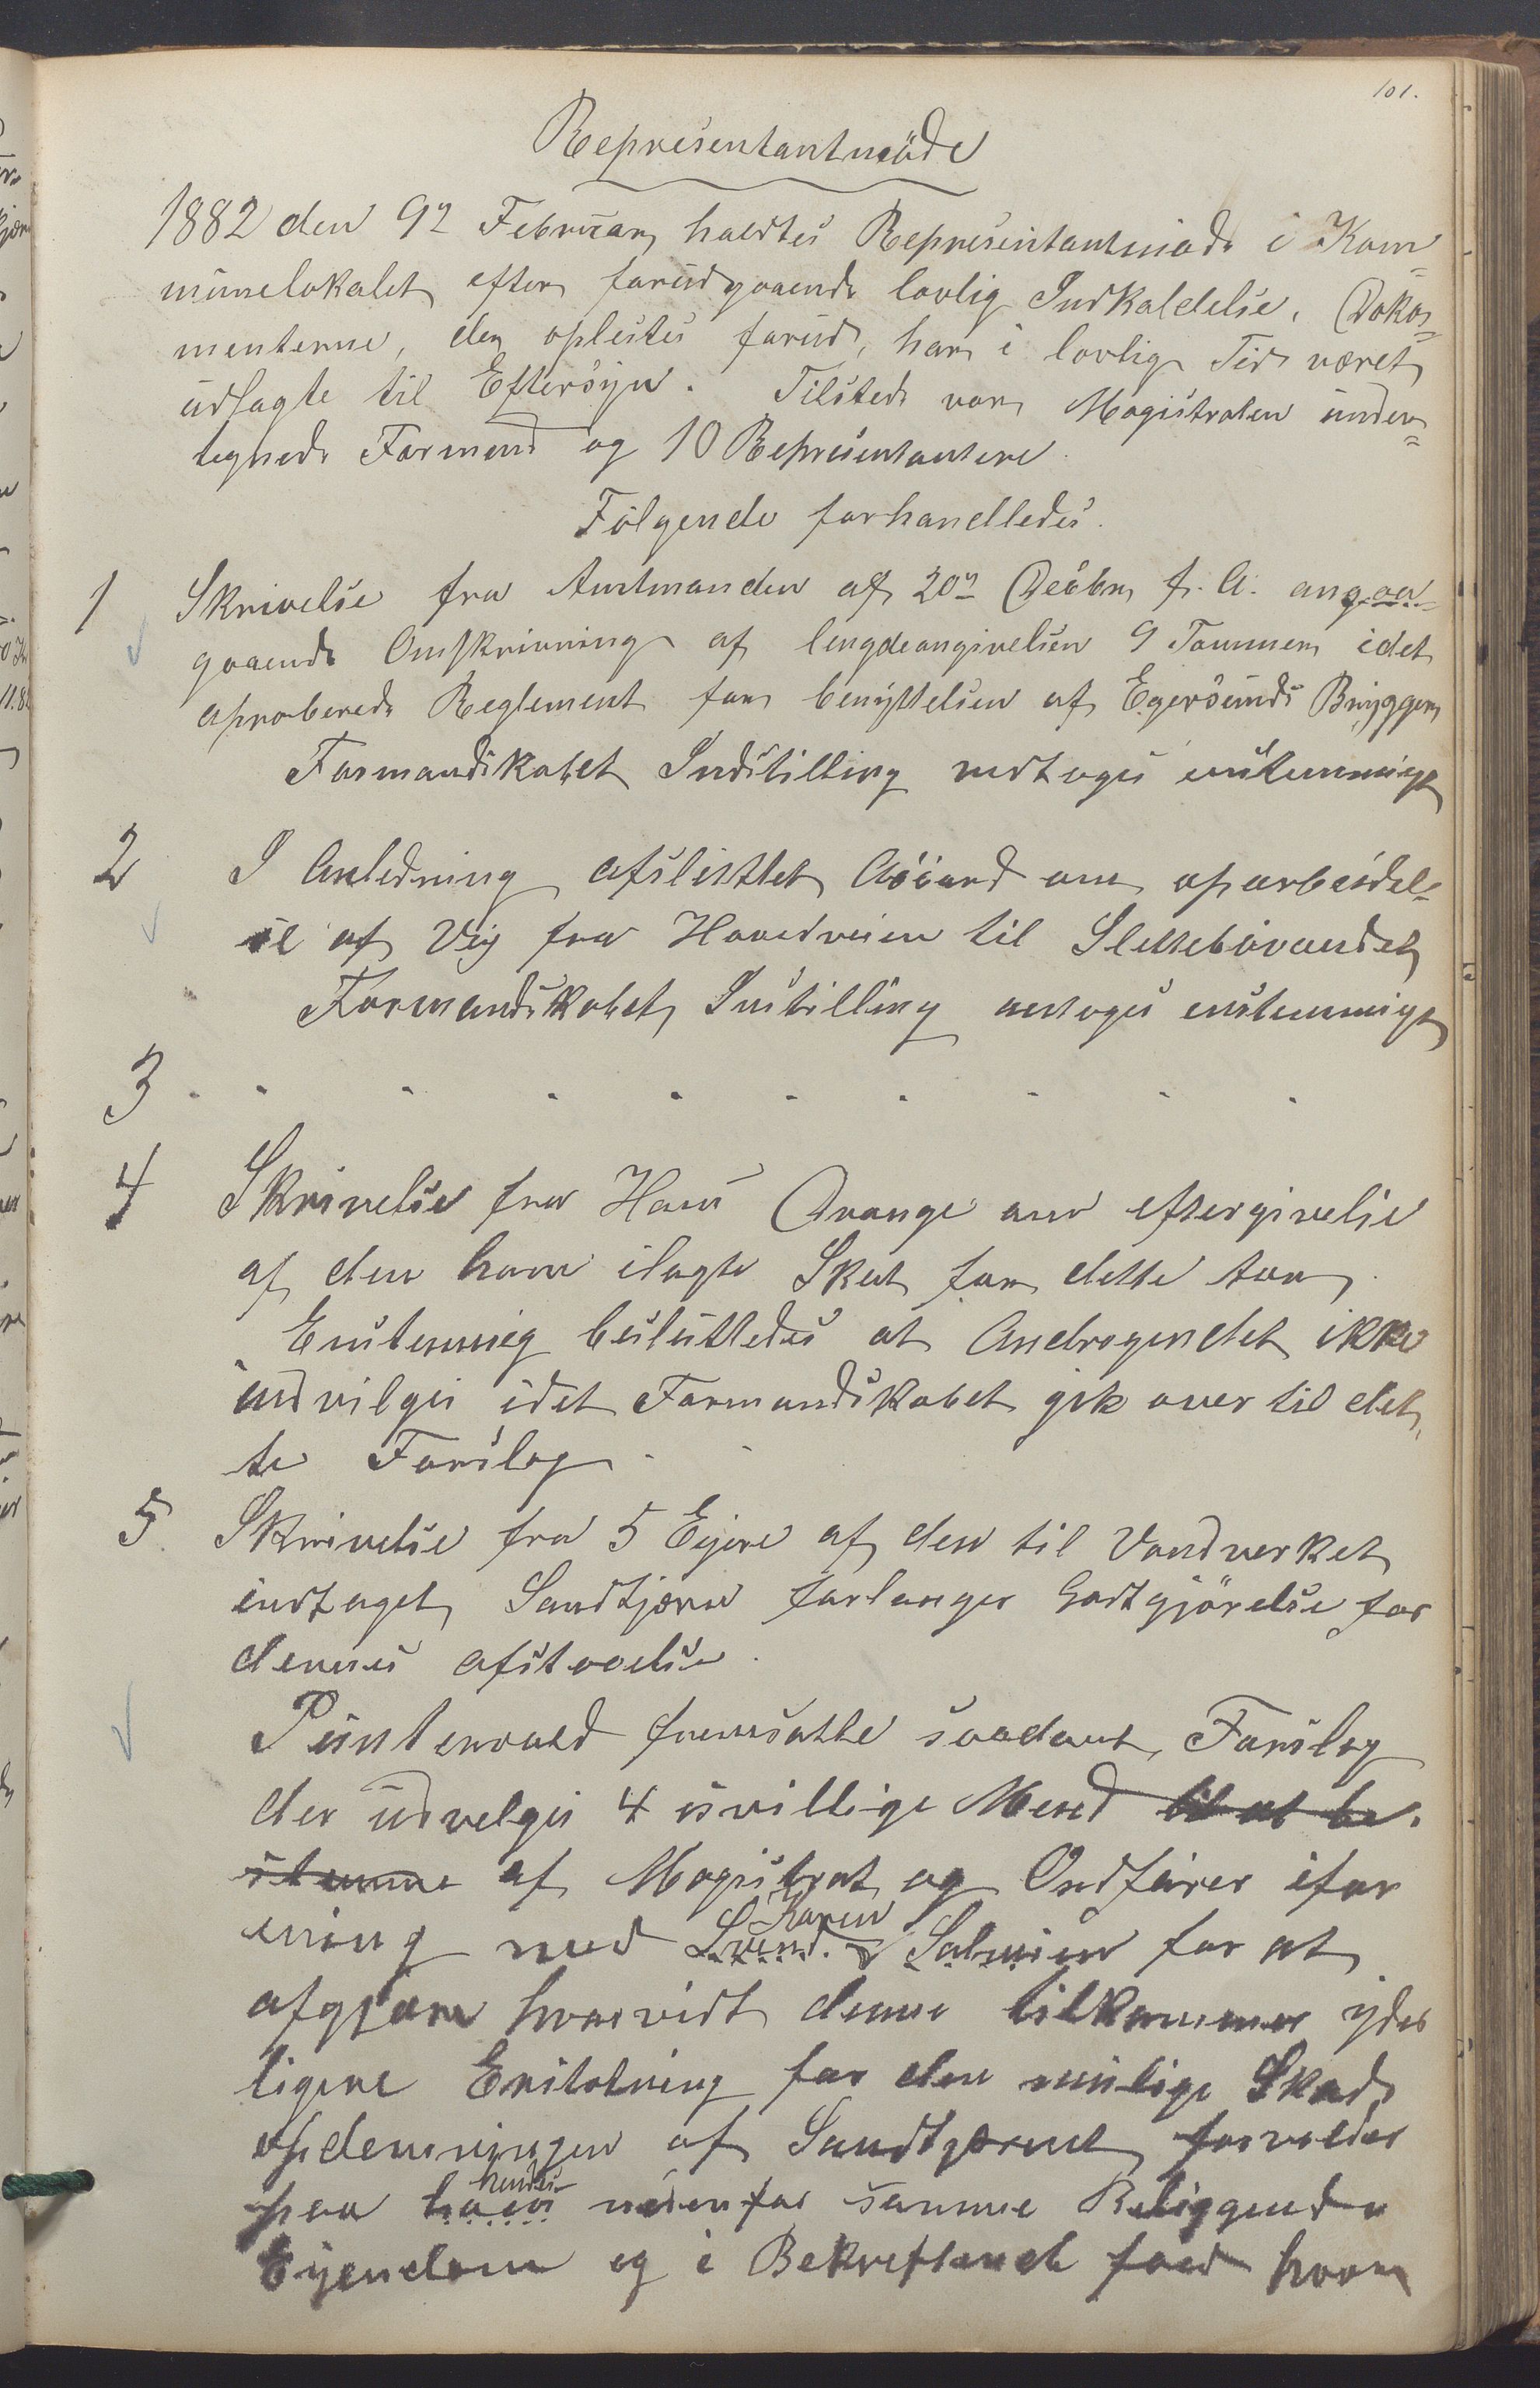 101.
Representantmöde
1882 den 9de Februar holdtes Representantmöde i Kom¬
munelokalet efter forudgaaende lovlig Indkaldelse. Doku¬
menterne, der oplestes forud, har i lovlig Tid været
udlagte til Eftersyn. Tilstede var Magistraten under¬
tegnede Formand og 10 Representantere.
Fölgende forhandledes.
1 Skrivelse fra Amtmanden af 20de Decbr f. A. angaa¬
gaaende Omskrivning af lengdeangivelsen 9 Tommer i det
aproberede Reglement for benyttelsen af Egersunds Brygger
Formandskabet Indstilling vedtoges enstemmigt
2 I Anledning Aad om oparbeidel¬
se af Vej fra Hovedveien til Slettebövandet
Formandskabet Instilling antoges enstemmigt
3 . . . . . . . . . .
4 Skrivelse fra Hans Drange om eftergivelse
af den ham ilagte Skat for dette Aar.
Enstemmig besluttedes at Andragendet ikke
indvilges idet Formandskabet gik over til det¬
te Forslag.
5 Skrivelse fra 5 Eiere af den til Vandverket
indtaget Sandtjern forlanger Godtgjörelse for
dennes afstaaelse.
Puntervold fremsatte saadant Forslag
der udvelges 4 uvillige Mend til at be¬
stemme af Magistrat og Ordförer ifor
ening med Svend. Karen Salmien for at
afgjöre hvorvidt denne tilkommer yder
ligere Erstatning for den mulige Skade
opdemningen af Sandtjernet forvolder
paa hans hendes nedenfor samme Beliggende
Eijendom og i Bekreftende fald hvor